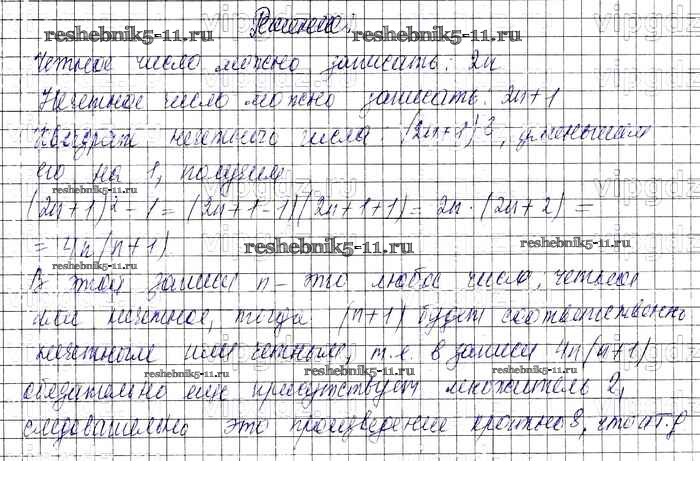 Решение:
reshebnik5-11.ru reshebnik5-11.ru
Четное число можно записать: 2n
Нечетное число можно записать: 2n+1
Квадрат нечетного числа: (2n+1)², уменьшим
его на 1, получим
reshebnik5-11.ru
(2n+1)² - 1 = (2n+1-1)(2n+1+1) = 2n·(2n+2) =
= 4n(n+1)
reshebnik5-11.ru
В этой записи n - это любое число, четное
или нечетное, тогда (n+1) будет соответственно
нечетным или четным, т.е. в записи 4n(n+1)
reshebnik5-11.ru reshebnik5-11.ru
обязательно еще присутствует множитель 2,
следовательно это произведение кратно 8, что и т.д
vipgdz.ru